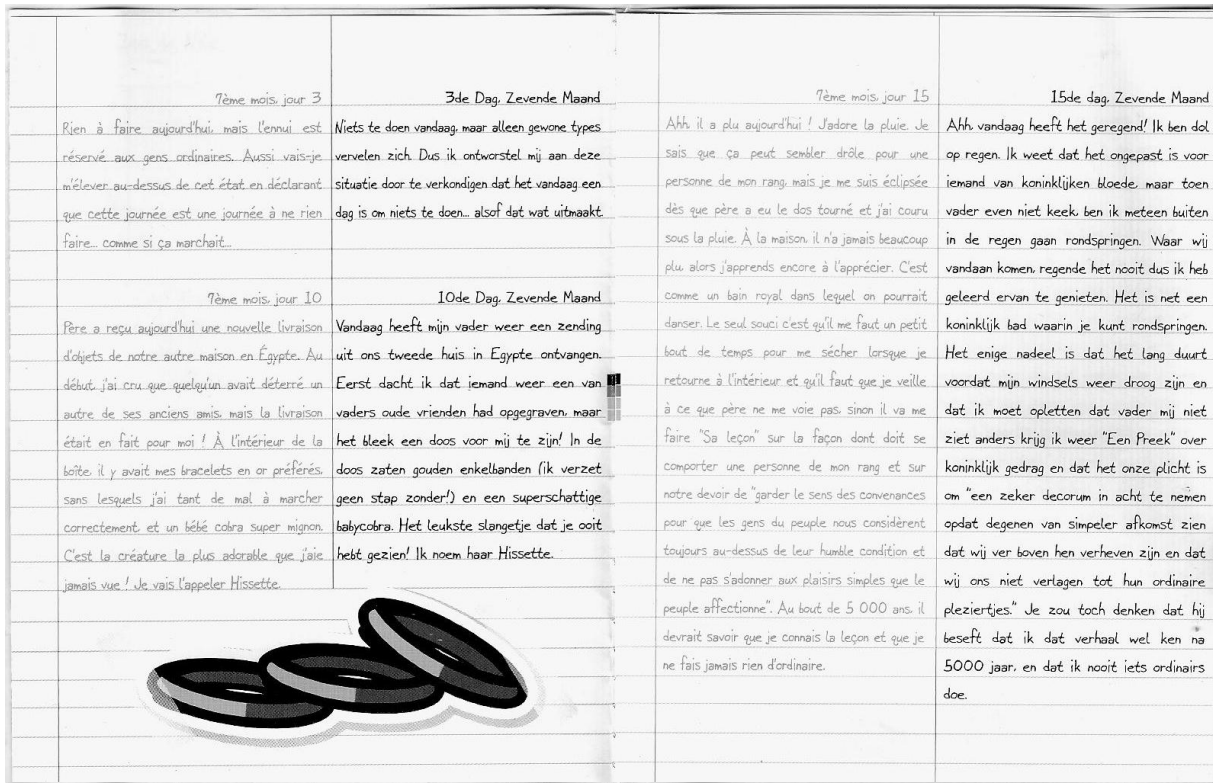 7ème mois, jour 3
Rien à faire aujourd'hui, mais l'ennui est
réservé aux gens ordinaires. Aussi vais-je
m'élever au-dessus de cet état en déclarant
que cette journée est une journée à ne rien
faire... comme si ça marchait...
7ème mois, jour 10
Père a reçu aujourd'hui une nouvelle livraison
d'objets de notre autre maison en Égypte. Au
début, j'ai cru que quelqu'un avait déterré un
autre de ses anciens amis, mais la livraison
était en fait pour moi ! À l'intérieur de la
boîte, il y avait mes bracelets en or préférés,
sans lesquels j'ai tant de mal à marcher
correctement, et un bébé cobra super mignon.
C'est la créature la plus adorable que j'aie
jamais vue ! Je vais l'appeler Hissette.
3de Dag, Zevende Maand
Niets te doen vandaag, maar alleen gewone types
vervelen zich. Dus ik ontworstel mij aan deze
situatie door te verkondigen dat het vandaag een
dag is om niets te doen... alsof dat wat uitmaakt.
10de Dag, Zevende Maand
Vandaag heeft mijn vader weer een zending
uit ons tweede huis in Egypte ontvangen.
Eerst dacht ik dat iemand weer een van
vaders oude vrienden had opgegraven, maar
het bleek een doos voor mij te zijn! In de
doos zaten gouden enkelbanden (ik verzet
geen stap zonder!) en een superschattige
babycobra. Het leukste slangetje dat je ooit
hebt gezien! Ik noem haar Hissette.
7ème mois, jour 15
Ahh, il a plu aujourd'hui ! J'adore la pluie. Je
sais que ça peut sembler drôle pour une
personne de mon rang, mais je me suis éclipsée
dès que père a eu le dos tourné et j'ai couru
sous la pluie. À la maison, il n'a jamais beaucoup
plu alors j'apprends encore à l'apprécier. C'est
comme un bain royal dans lequel on pourrait
danser. Le seul souci c'est qu'il me faut un petit
bout de temps pour me sécher lorsque je
retourne à l'intérieur et qu'il faut que je veille
à ce que père ne me voie pas, sinon il va me
faire "Sa leçon" sur la façon dont doit se
comporter une personne de mon rang et sur
notre devoir de "garder le sens des convenances
pour que les gens du peuple nous considèrent
toujours au-dessus de leur humble condition et
de ne pas s'adonner aux plaisirs simples que le
peuple affectionne". Au bout de 5 000 ans, il
devrait savoir que je connais la leçon et que je
ne fais jamais rien d'ordinaire.
15de dag, Zevende Maand
Ahh, vandaag heeft het geregend! Ik ben dol
op regen. Ik weet dat het ongepast is voor
iemand van koninklijken bloede, maar toen
vader even niet keek, ben ik meteen buiten
in de regen gaan rondspringen. Waar wij
vandaan komen, regende het nooit dus ik heb
geleerd ervan te genieten. Het is net een
koninklijk bad waarin je kunt rondspringen.
Het enige nadeel is dat het lang duurt
voordat mijn windsels weer droog zijn en
dat ik moet opletten dat vader mij niet
ziet anders krijg ik weer "Een Preek" over
koninklijk gedrag en dat het onze plicht is
om "een zeker decorum in acht te nemen
opdat degenen van simpeler afkomst zien
dat wij ver boven hen verheven zijn en dat
wij ons niet verlagen tot hun ordinaire
pleziertjes." Je zou toch denken dat hij
beseft dat ik dat verhaal wel ken na
5000 jaar, en dat ik nooit iets ordinairs
doe.